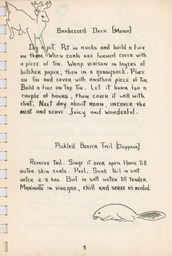 Barbecued Deer (Mowa)
Dig a pit. Put in rocks and build a fire
on them. When coals are formed cover with
a piece of tin. Wrap venison in layers of
butcher paper, then in a gunnysack. Place
on tin and cover with another piece of tin.
Build a fire on top tin. Let it burn for a
couple of hours, then cover it well with
dirt. Next day about noon, uncover the
meat and serve. Juicy and wonderful.
Pickled Beaver Tail
Remove tail. Singe it over open flame till
outer skin coals. Peel. Soak tail in salt
water 2-3 hrs. Boil in salt water till tender.
Marinate in vinegar, chill and serve as needed.
5